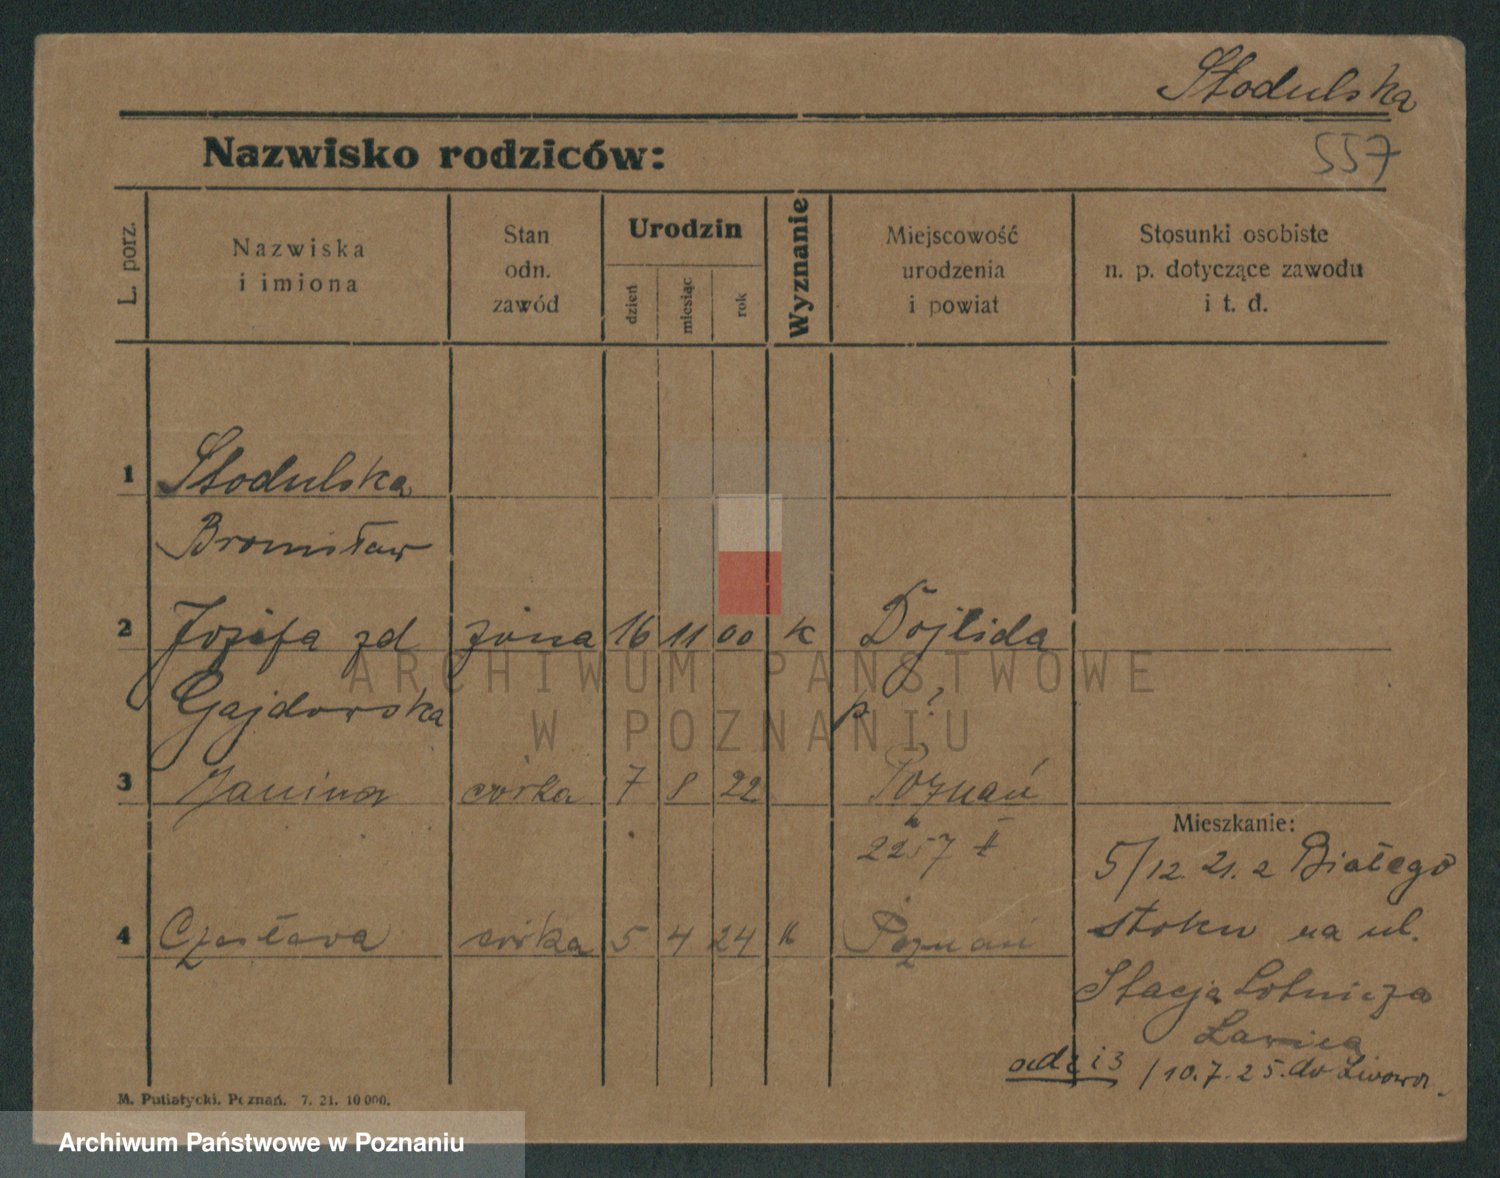 Stodulska
557
Nazwisko rodziców:
L. porz.
Nazwiska
i imiona
Stan
odn.
zawód
Urodzin
dzień
miesiąc
rok
Wyznanie
Miejscowość
urodzenia
i powiat
Stosunki osobiste
n. p. dotyczące zawodu
i t. d.
1 Stodulska
Bronisław
2 Józefa zd żona 16 11 00 k Dojlida
Gajdowska p. ?
3 Janina córka 7 8 22 Poznań
2257 II
Mieszkanie:
5/12. 21. z Białego
4 Czesława córka 5 4 24 k Poznań
stoku na ul.
Stacja Lotnicza
Ławica
od 2 i 3 /10.7.25. do Lwowa.
M. Putiatycki. Poznań. 7. 21. 10 000.
ARCHIWUM PAŃSTWOWE
W POZNANIU
Archiwum Państwowe w Poznaniu